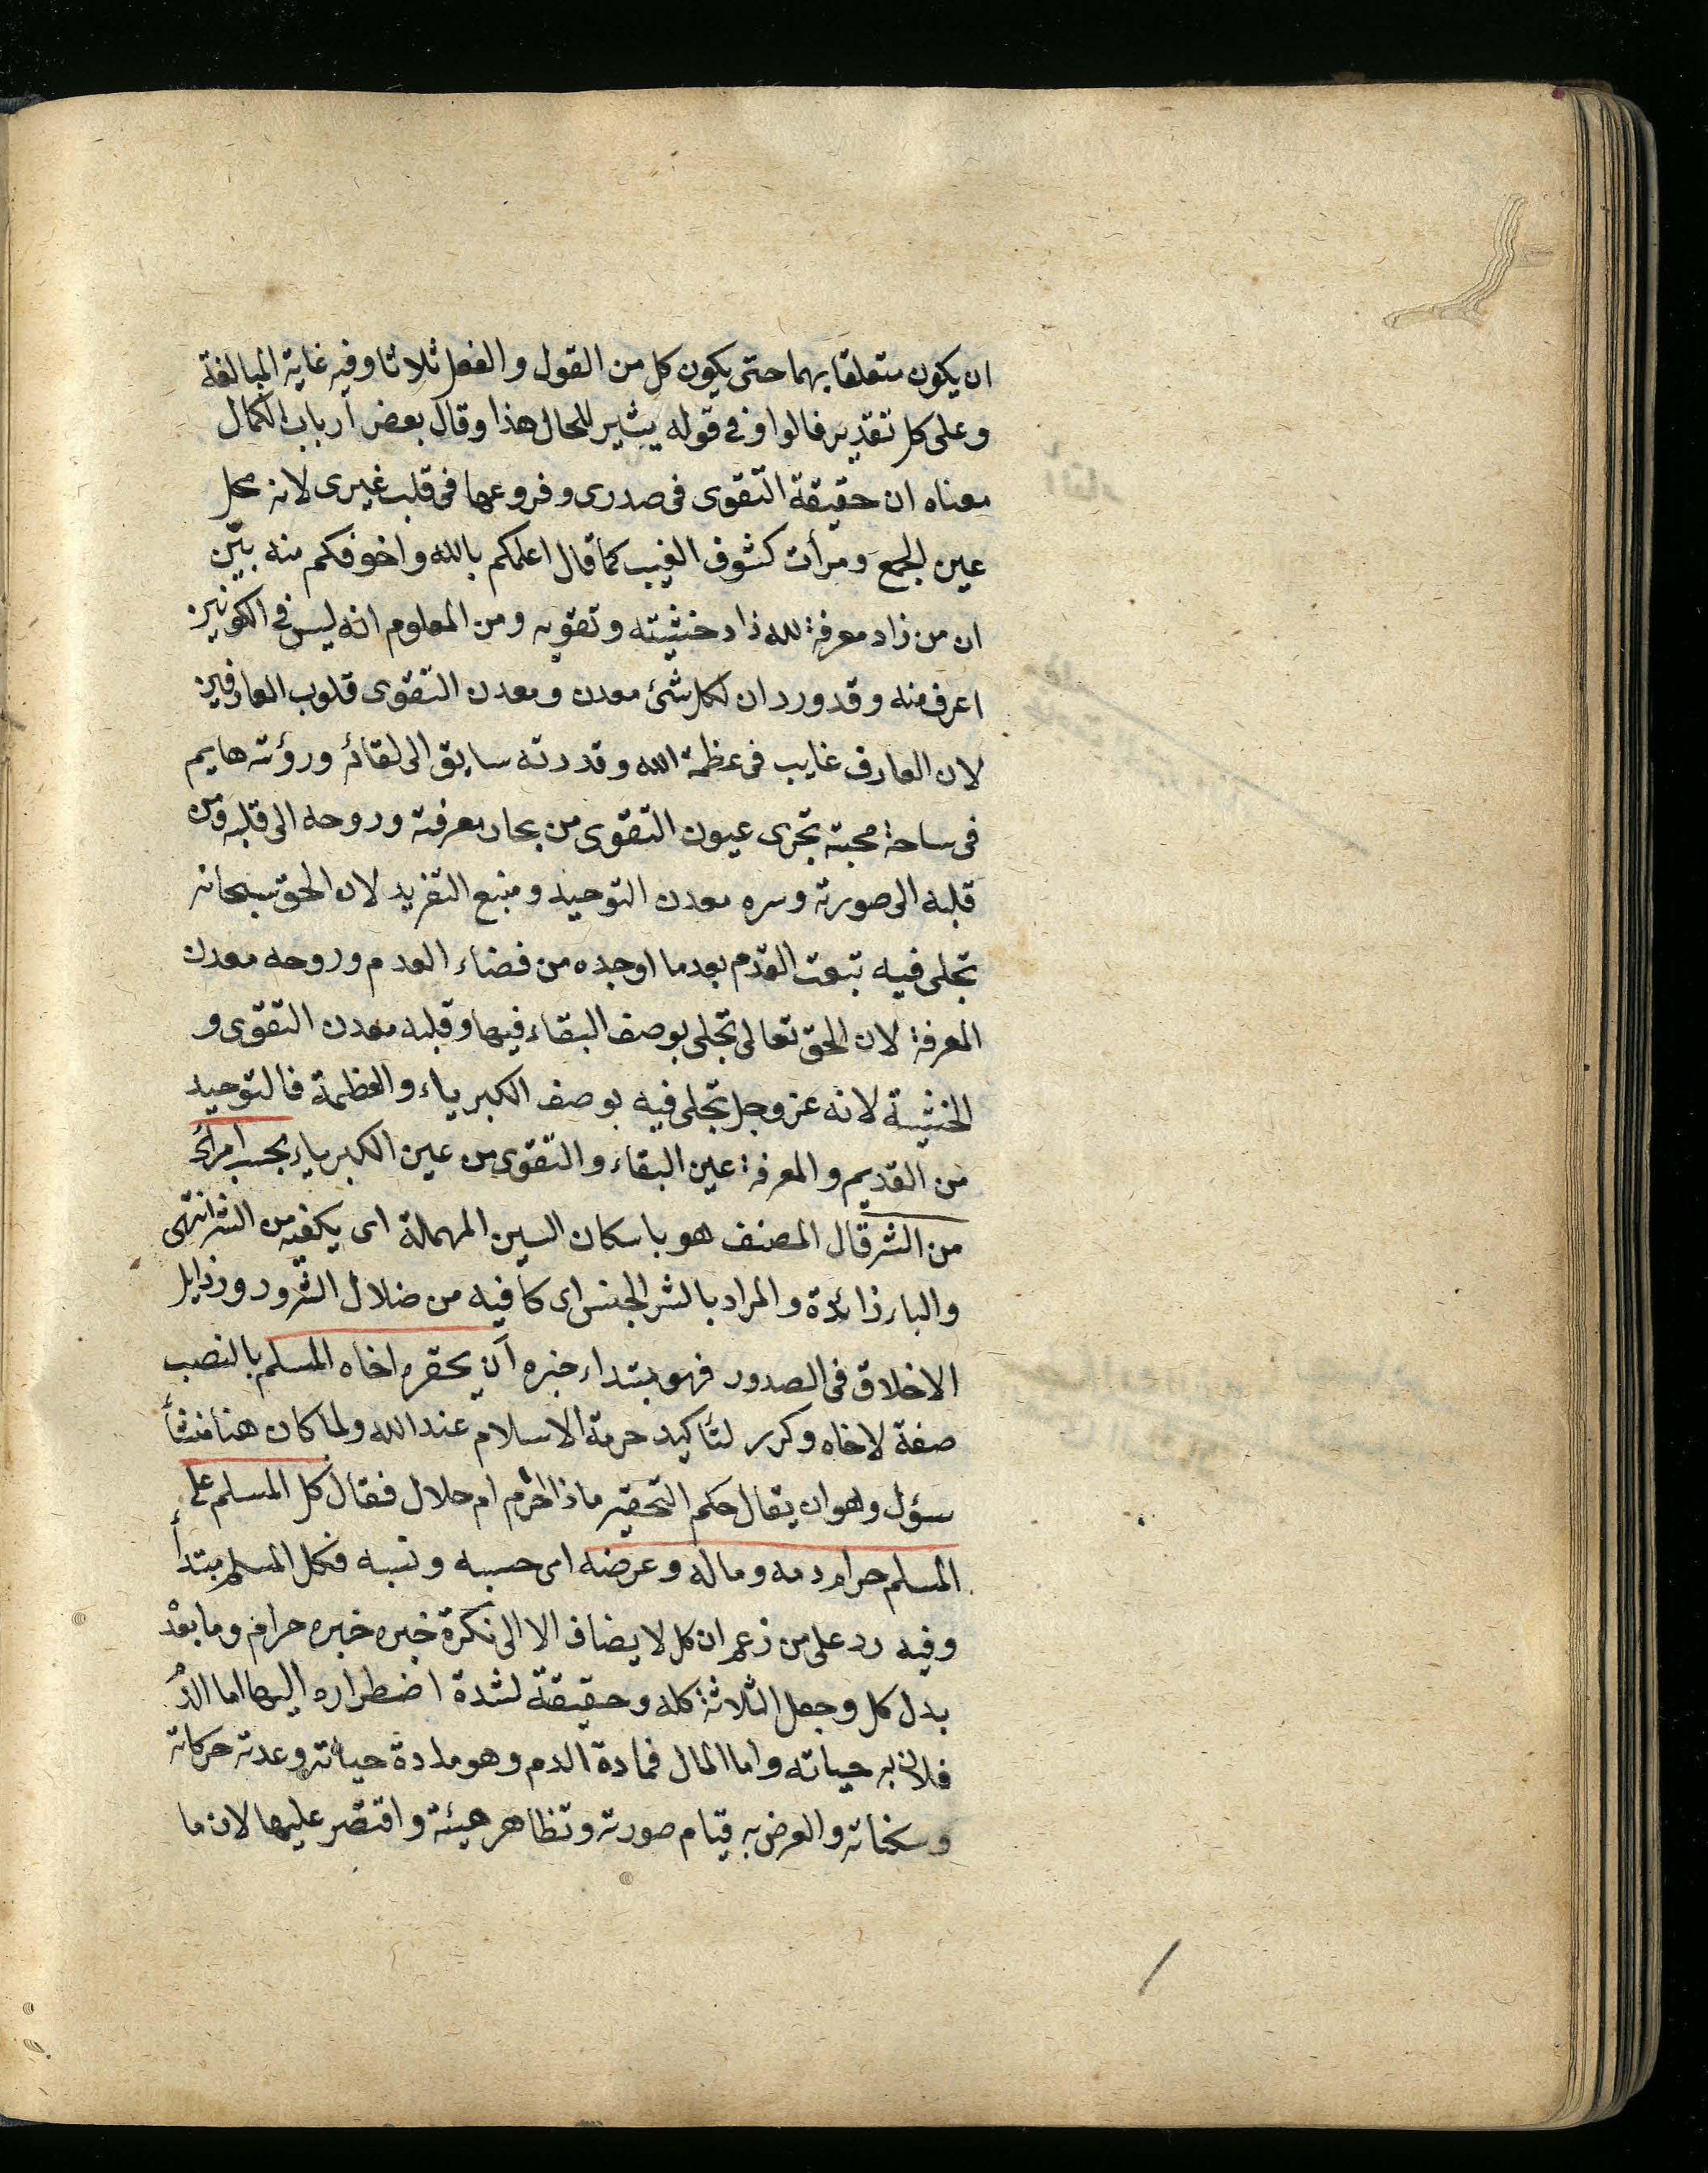 ان يكون متعلقا بهما حتى يكون كل من القول والفعل ثلاثا وفيه غاية المبالغة
وعلى كل تقدير فالواو في قوله يشير للحال هذا وقال بعض أرباب الكمال
معناه ان حقيقة التقوى فى صدرى وفروعها فى قلب غيرى لانه محل
عين الجمع ومرأت كشوف الغيب كما قال اعلمكم بالله واخوفكم منه بيّن
ان من زاد معرفة لله زاد خشيته وتقويه ومن المعلوم انه ليس في الكونين
اعرف منه وقد ورد ان لكل شئ معدن ومعدن التقوى قلوب العارفين
لان العارف غايب فى عظمة الله وقدرته سايق الى لقائه ورؤته هايم
فى ساحة محبته تجرى عيون التقوى من بحار معرفته وروحه الى قلبه ومن
قلبه الى صورته وسره معدن التوحيد ومنبع التفريد لان الحق سبحانه
تجلى فيه بنعت القدم بعدما اوجده من فضاء العدم وروحه معدن
المعرفة لان الحق تعالى تجلى بوصف البقاء فيها وقلبه معدن التقوى و
الخشية لانه عز وجل تجلى فيه بوصف الكبرياء والعظمة فالتوحيد
من القديم والمعرفة عين البقاء والتقوى من عين الكبرياء بحسب امرائ
من الشر قال المصنف هو باسكان السين المهملة اى يكفيه من الشر انتهى
والباء زائدة والمراد بالشر الجنس اى كافيه من ضلال الشرور ورذايل
الاخلاق فى الصدور فهو مبتداء خبره أن يحقر اخاه المسلم بالنصب
صفة لاخاه وكرر لتأكيد حرمة الاسلام عند الله ولما كان هنا منشأ
سؤل وهو ان يقال حكم التحقير ماذا احرم ام حلال فقال كل المسلم على
المسلم حرام دمه وماله وعرضه اى حسبه ونسبه فكل المسلم مبتدأ
وفيه رد على من زعم ان كل لا يضاف الا الى نكرة خبره خبره حرام وما بعد
بدل كل وجعل الثلاثة كله وحقيقة لشدة اضطراره اليها اما الدم
فلان به حياته واما المال فمادة الدم وهو مادة حياته وعدته حركاته
وسكناته والعرض به قيام صورته وتظاهر هيئته واقتصر عليها لان ما